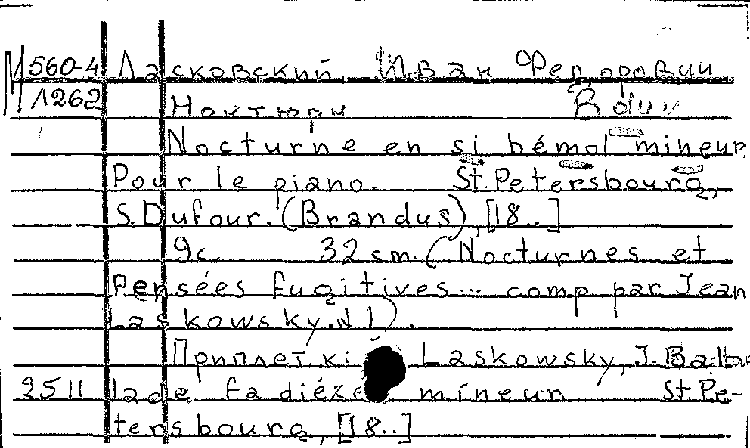 М 560-4 Ласковский, Иван Федорович
1262 Ноктюрн
Nocturne en si bémol mineur
Pour le piano. St. Petersbourg,
S. Dufour. (Brandus), [18..]
9 с. 32 sm. (Nocturnes et
Pensées fugitives... comp par Jean
Laskowsky. N 1).
Приплет. к: Laskowsky, J. Bal-
2511 lade fa dièze mineur St. Pe-
tersbourg, [18..]